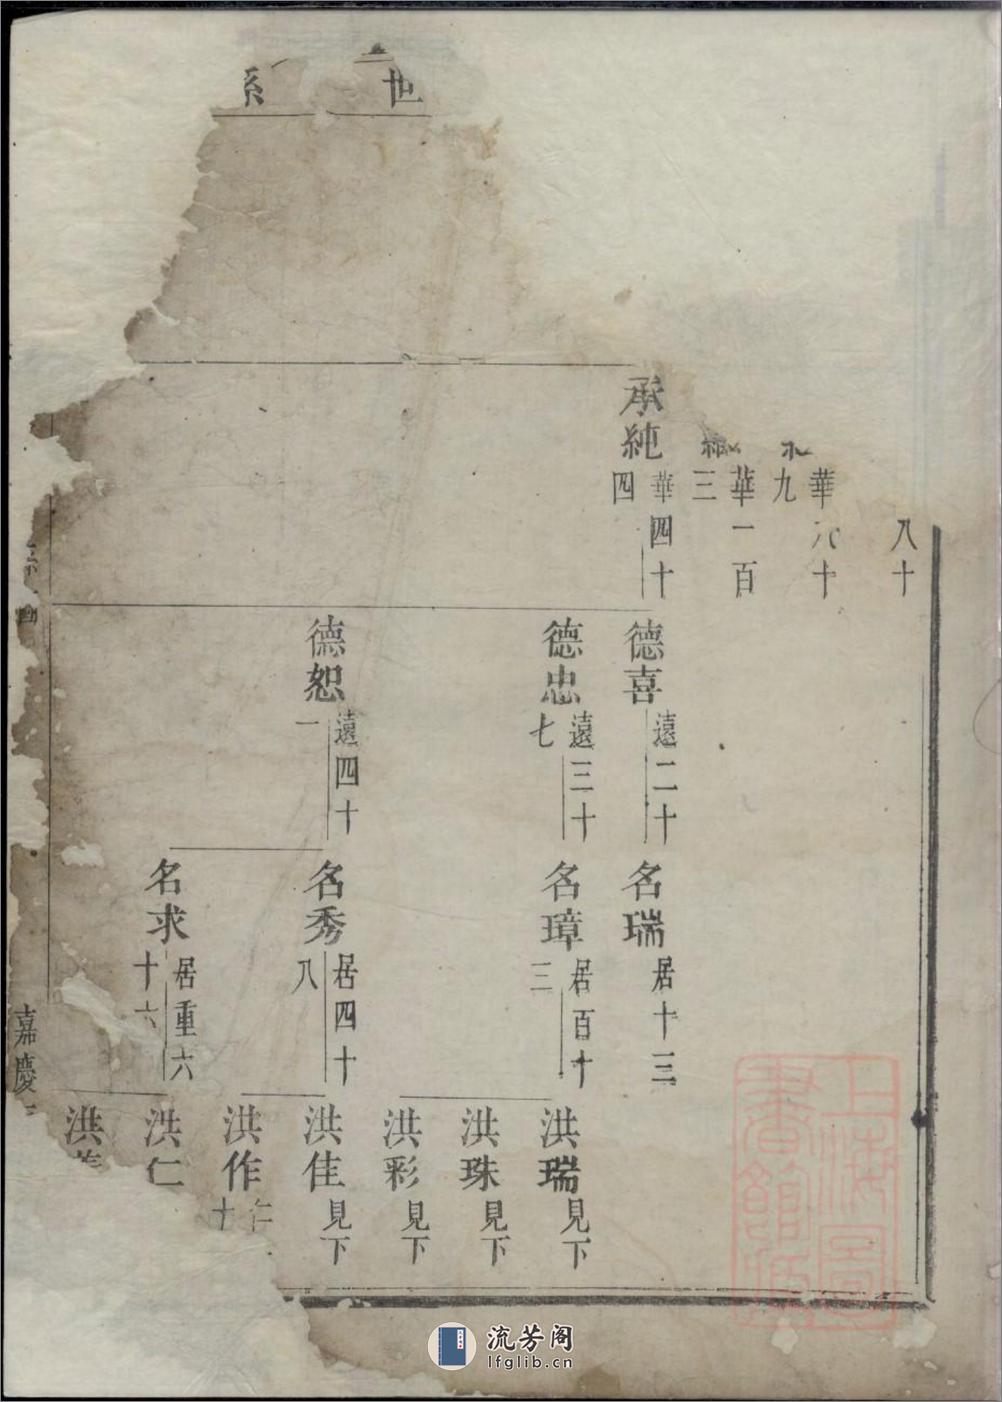 世系
八十
華六十
九
華一百
三
承純
華四十
四
德喜
遠二十
德忠
遠三十
七
德恕
遠四十
一
名瑞
居十三
名璋
居百十
三
名秀
居四十
八
名求
居重六
十六
洪瑞
見下
洪珠
見下
洪彩
見下
洪佳
見下
洪作
仁
十
洪仁
洪
嘉慶
上海圖
書館藏
流芳阁
lfglib.cn